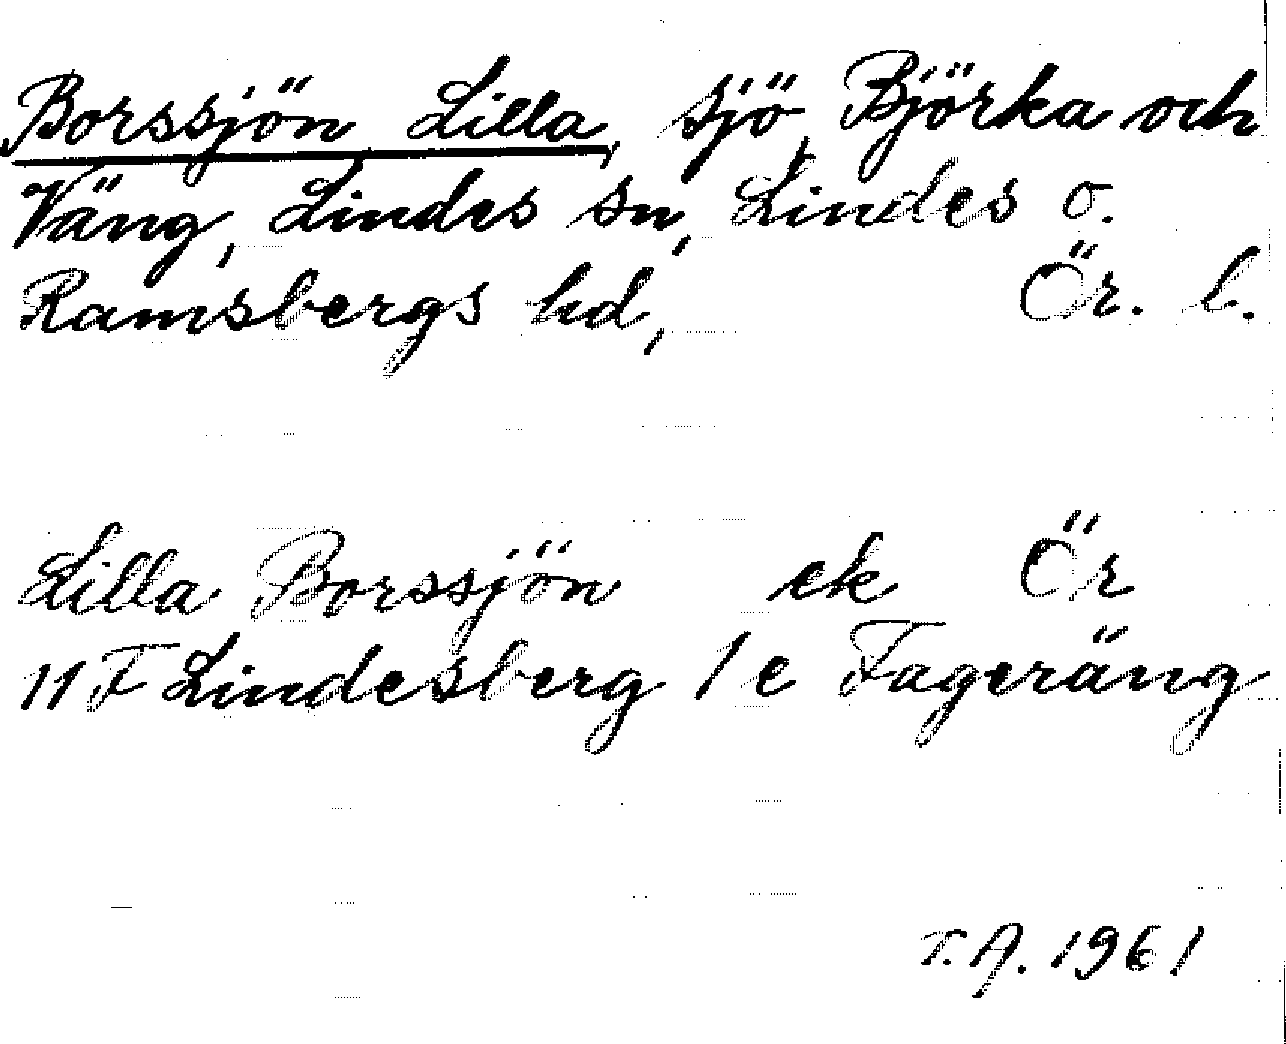 Borssjön Lilla, sjö, Björka och
Väng, Lindes sn, Lindes o.
Ramsbergs hd, Ör. l.
Lilla Borssjön ek Ör
11 F Lindesberg 1 e Fageräng
T.A. 1961